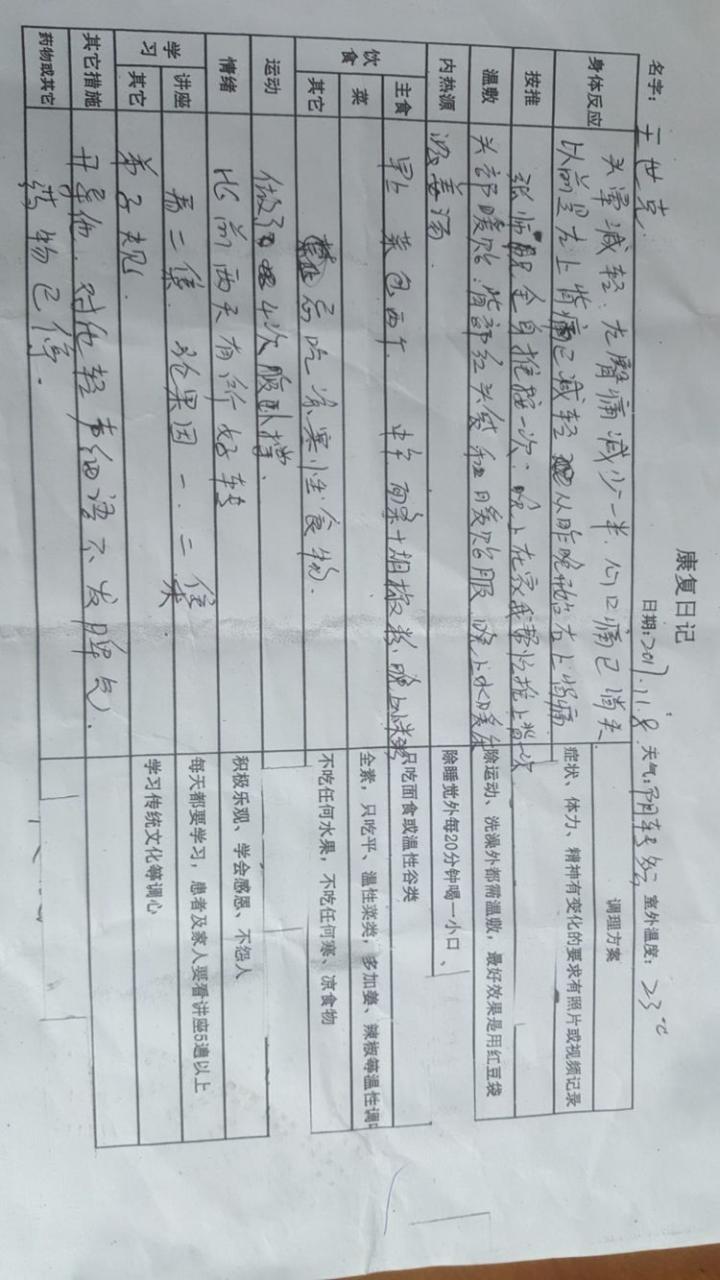 康复日记
名字: 王世克 日期:2017.11.8 天气:阴转多云 室外温度: 23℃
调理方案
身体反应 头晕减轻. 左肾痛减少一半. 心口痛已消失
以前是左上背痛已减轻 从昨晚开始右上背痛 症状、体力、精神有变化的要求有照片或视频记录
按推 全身推按一次. 晚上在家我帮忙推上背一次
温敷 头部暖贴. 背部红头袋和暖贴服 晚上水暖 除运动、洗澡外都需温敷,最好效果是用红豆袋
内热源 姜汤. 除睡觉外每20分钟喝一小口、
饮食 主食 早上 菜包两个 中午 面条+胡椒粉. 晚上 只吃面食或温性谷类
菜 全素,只吃平、温性菜类,多加姜、辣椒等温性调
其它 忌吃凉寒性食物. 不吃任何水果,不吃任何寒、凉食物
运动 做了4次服卧撑.
情绪 比前两天有所好转 积极乐观、学会感恩、不怨人
学习 讲座 看二集 效果因 一. 二集 每天都要学习,患者及家人要看讲座5遍以上
其它 弟子规. 学习传统文化等调心
其它措施 开导他. 对他轻声细语不发脾气.
药物或其它 药物已停.